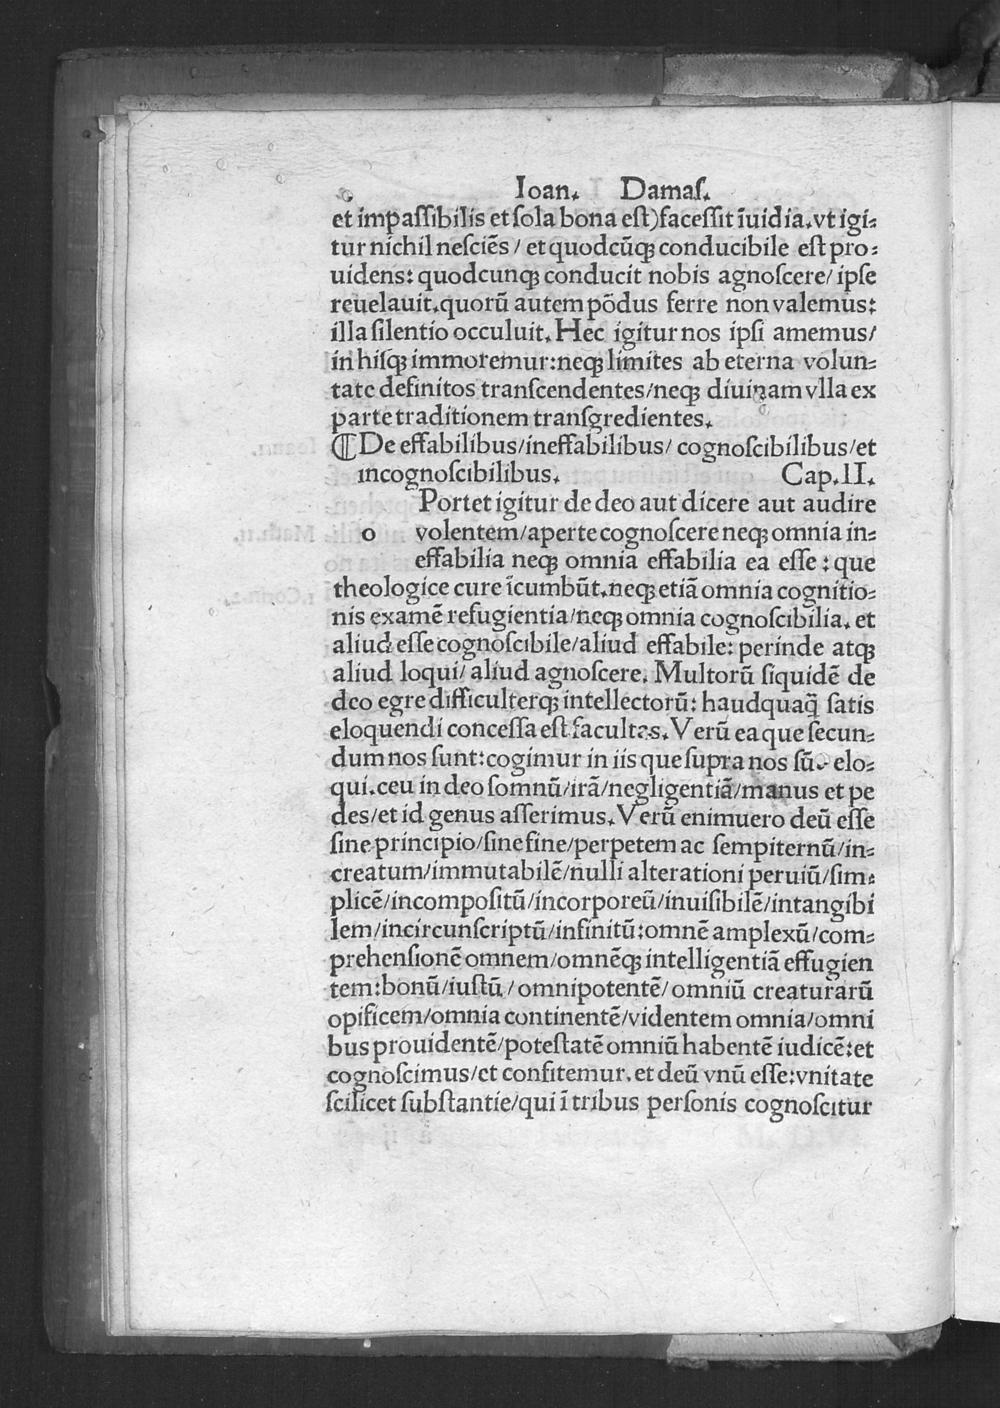 Ioan. Damaſ.
et impaſſibilis et ſola bona eſt)faceſſit ĩuidia.vt igi⸗
tur nichil neſciẽs / et quodcũqꝫ conducibile eſt pro⸗
uidens: quodcunqꝫ conducit nobis agnoſcere/ ipſe
reuelauit.quorũ autem põdus ferre non valemus:
illa ſilentio occuluit. Hec igitur nos ipſi amemus/
in hiſqꝫ immoremur:neqꝫ limites ab eterna volun⸗
tate definitos tranſcendentes/neqꝫ diuinam vlla ex
parte traditionem tranſgredientes.
¶ De effabilibus/ineffabilibus/ cognoſcibilibus/et
incognoſcibilibus. Cap.II.
Portet igitur de deo aut dicere aut audire
o volentem/aperte cognoſcere neqꝫ omnia in⸗
effabilia neqꝫ omnia effabilia ea eſſe : que
theologice cure ĩcumbũt.neqꝫ etiã omnia cognitio⸗
nis examẽ refugientia/neqꝫ omnia cognoſcibilia. et
aliud eſſe cognoſcibile/aliud effabile: perinde atqꝫ
aliud loqui/ aliud agnoſcere. Multorũ ſiquidẽ de
deo egre difficulterqꝫ intellectorũ: haudquaq̃ ſatis
eloquendi conceſſa eſt facultas. Verũ ea que ſecun⸗
dum nos ſunt:cogimur in iis que ſupra nos sũt elo⸗
qui.ceu in deo ſomnũ/irã/negligentiã/manus et pe
des/et id genus aſſerimus. Verũ enimuero deũ eſſe
ſine principio/ſine fine/perpetem ac ſempiternũ/in⸗
creatum/immutabilẽ/nulli alterationi peruiũ/ſim⸗
plicẽ/incompoſitũ/incorporeũ/inuiſibilẽ/intangibi
lem/incircunſcriptũ/infinitũ:omnẽ amplexũ/com⸗
prehenſionẽ omnem/omnẽqꝫ intelligentiã effugien
tem:bonũ/iuſtũ/omnipotentẽ/omniũ creaturarũ
opificem/omnia continentẽ/videntem omnia/omni
bus prouidentẽ/poteſtatẽ omniũ habentẽ iudicẽ:et
cognoſcimus/et confitemur.et deũ vnũ eſſe:vnitate
ſcilicet ſubſtantie/qui ĩ tribus perſonis cognoſcitur